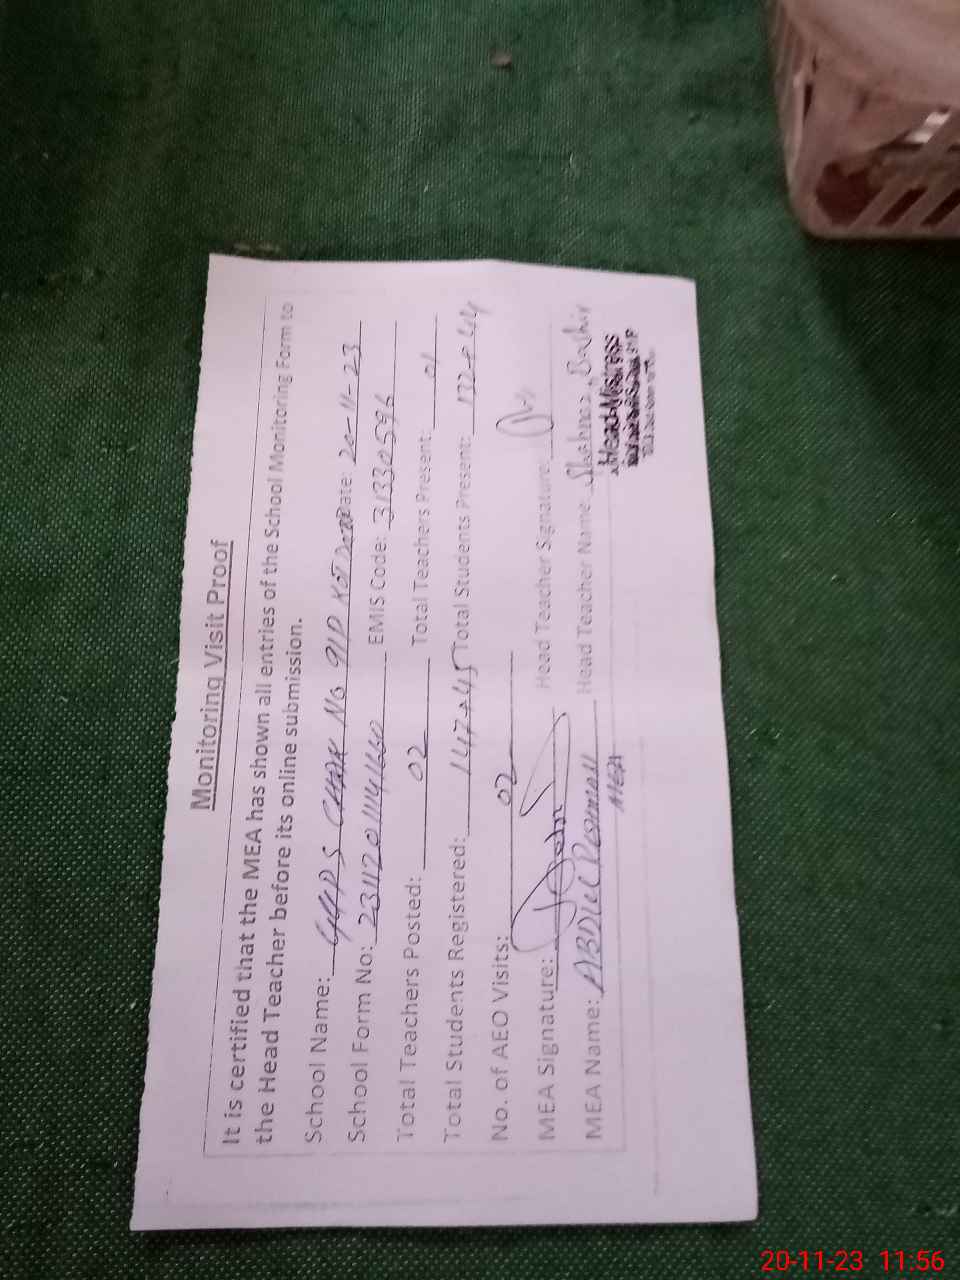 Monitoring Visit Proof
It is certified that the MEA has shown all entries of the School Monitoring Form to
the Head Teacher before its online submission.
School Name: CHAK No 91P Date: 20-11-23
School Form No: EMIS Code: 31330596
Total Teachers Posted: 02 Total Teachers Present: 01
Total Students Registered: 147+45 Total Students Present: 132+44
No. of AEO Visits: 02
MEA Signature: Head Teacher Signature:
MEA Name: ABDUL Head Teacher Name: Shahnaz Bashir
MEA
Head Mistress
20-11-23 11:56